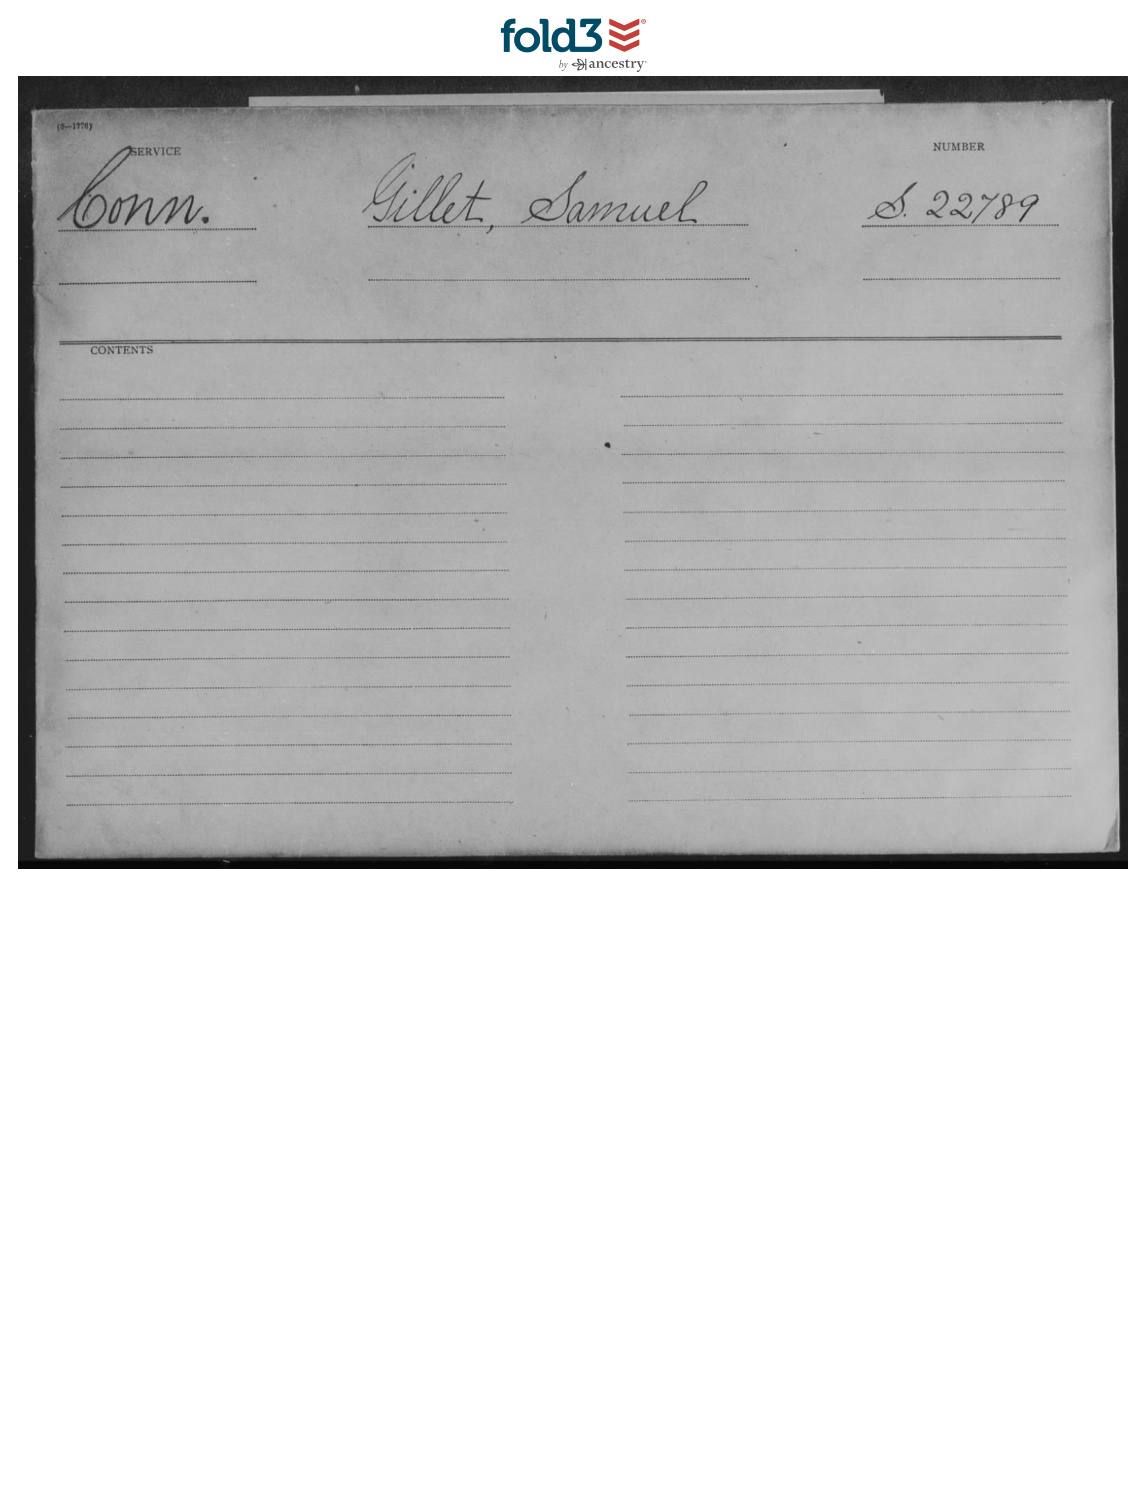 fold3
by ancestry
(6—1776)
SERVICE
NUMBER
Conn.
Gillet, Samuel
S. 22789
CONTENTS